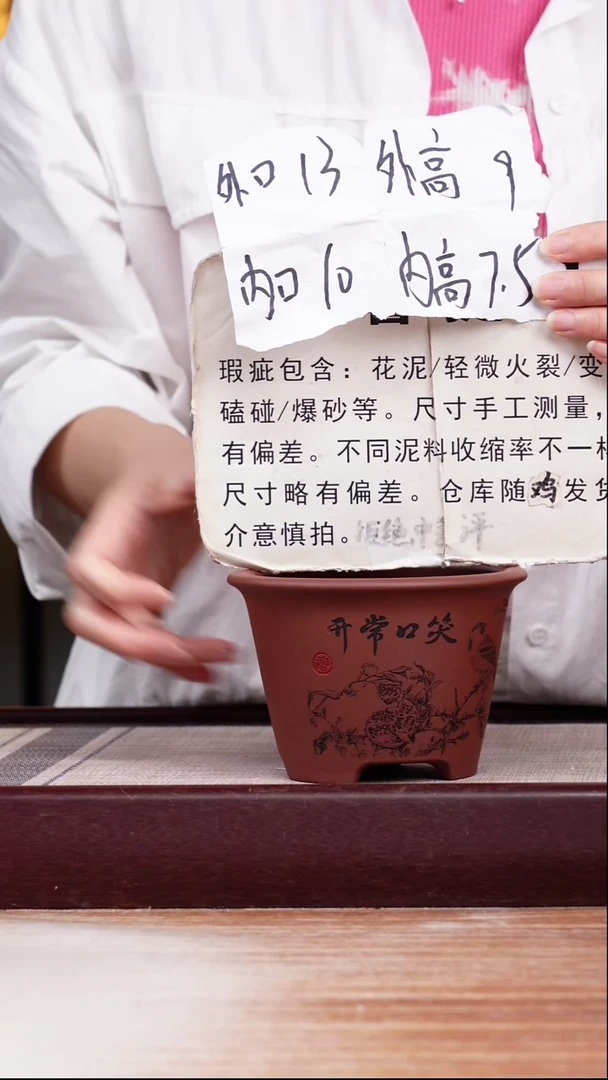 外口 13 外高 9
内口 10 内高 7.5
瑕疵包含：花泥/轻微火裂/变
磕碰/爆砂等。尺寸手工测量，
有偏差。不同泥料收缩率不一样
尺寸略有偏差。仓库随鸡发货
介意慎拍。拒绝中差评
开常口笑